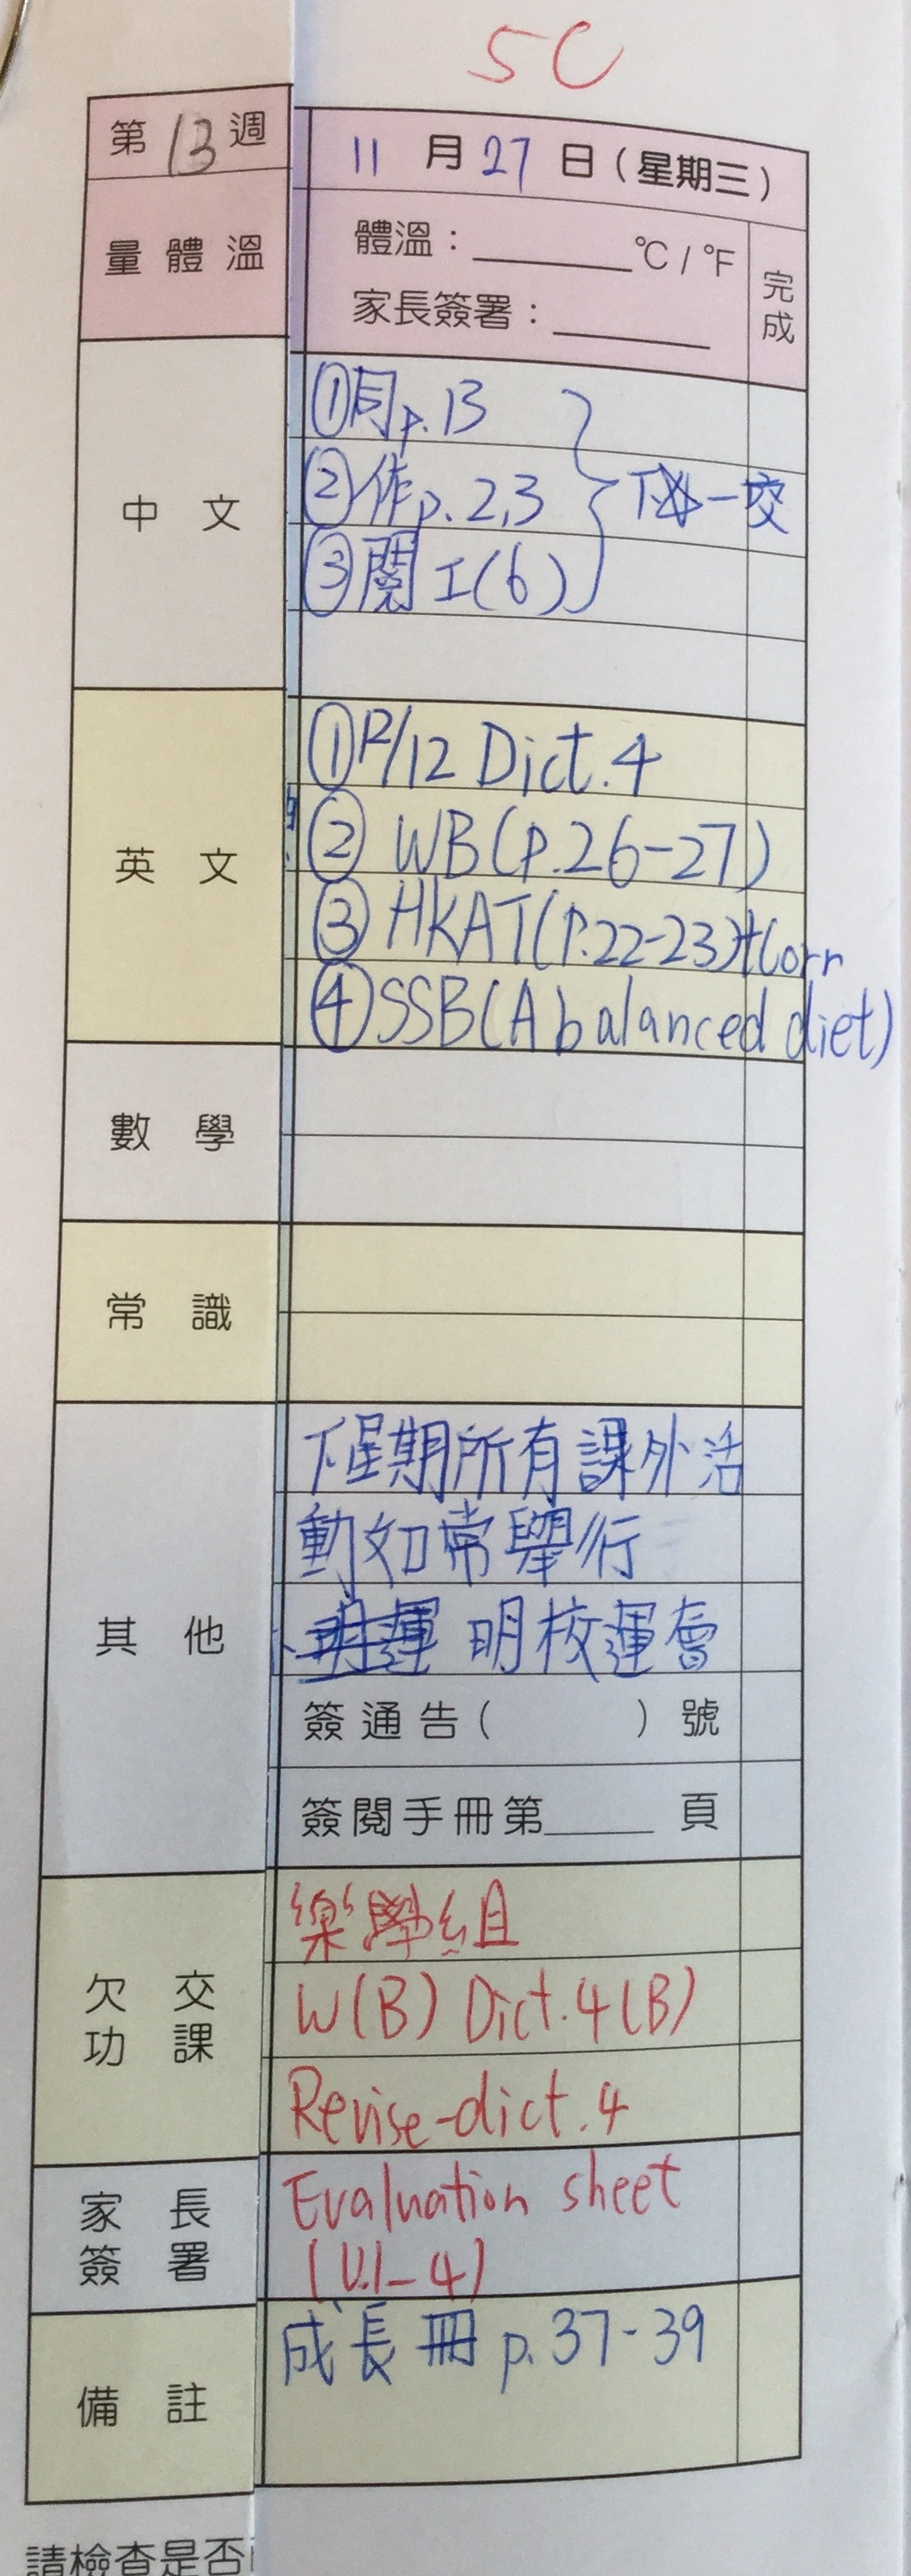 5C
第 13 週
11 月 27 日 (星期三)
量 體 溫
體溫：______℃ / ℉
家長簽署：______
完成
中 文
①自p.13
②作p.2,3
③閱工(6)
下一交
英 文
①R/12 Dict.4
② WB(P.26-27)
③ HKAT(P.22-23)+Corr
④SSB(A balanced diet)
數 學
常 識
其 他
下星期所有課外活
動如常舉行
明校運會
簽 通 告 ( ) 號
簽 閱 手 冊 第______ 頁
欠 交
功 課
樂學組
W(B) Dict.4(B)
Revise-dict.4
家 長
簽 署
Evaluation sheet
(U.1-4)
備 註
成長冊 p.37-39
請檢查是否